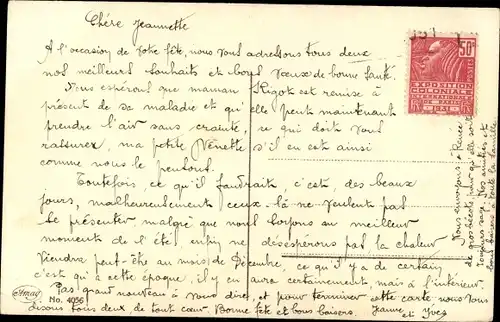 Chère Jeannette
A l'occasion de votre fête, nous vous adressons tous deux
nos meilleurs souhaits et bons vœux de bonne santé.
Nous espérons que maman Rigot est remise à
présent de sa maladie et qu'elle peut maintenant
prendre l'air sans crainte, ce qui doit vous
rassurer, ma petite Nénette s'il en est ainsi
comme nous le pensons.
Toutefois ce qu'il faudrait, c'est, des beaux
jours, malheureusement ceux-là ne veulent pas
se présenter, malgré que nous soyons au meilleur
moment de l'été, enfin ne désespérons pas la chaleur
viendra peut-être au mois de Décembre, ce qu'il y a de certain
c'est qu'à cette époque, il y en aura certainement, mais à l'intérieur.
Pas grand nouveau à vous dire, et pour terminer cette carte nous vous
disons tous deux de tout cœur. Bonne fête et bons baisers. Jeanne et Yves
Nous envoyons à Renée
de gros bécots pour qu'elle soit
toujours sage. Nos amitiés et
bons baisers à toute la famille.
50c
POSTES
EXPOSITION
COLONIALE
INTERNATIONALE
DE PARIS
1931
No. 4056